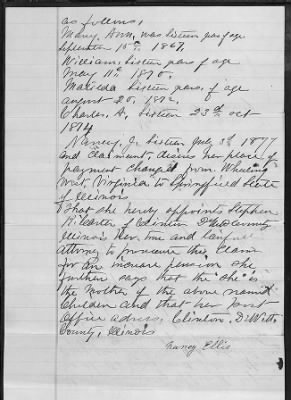 as follows,
Mary, Ann, was sixteen years of age
September 10th 1867.
William, sixteen years of age
May 11th 1870.
Matilda Sixteen years, of age
august 20, 1872,
Charles. A, Sixteen 23d oct
1874
Nancy, J, Sixteen July 3d 1877
and Claimant, desires her place of
payment changed from Wheeling
West, Virginia to Springfield State
of Illinois
That she hereby appoints Stephen
K. Carter of Clinton DeWitt County
Illinois her true and lawful
Attorney to prosecute this Claim
for an increase pension she
further says that the she is
the Mother of the above named
Children and that her post
office adress, Clinton, DeWitt
County, Illinois
Nancy Ellis